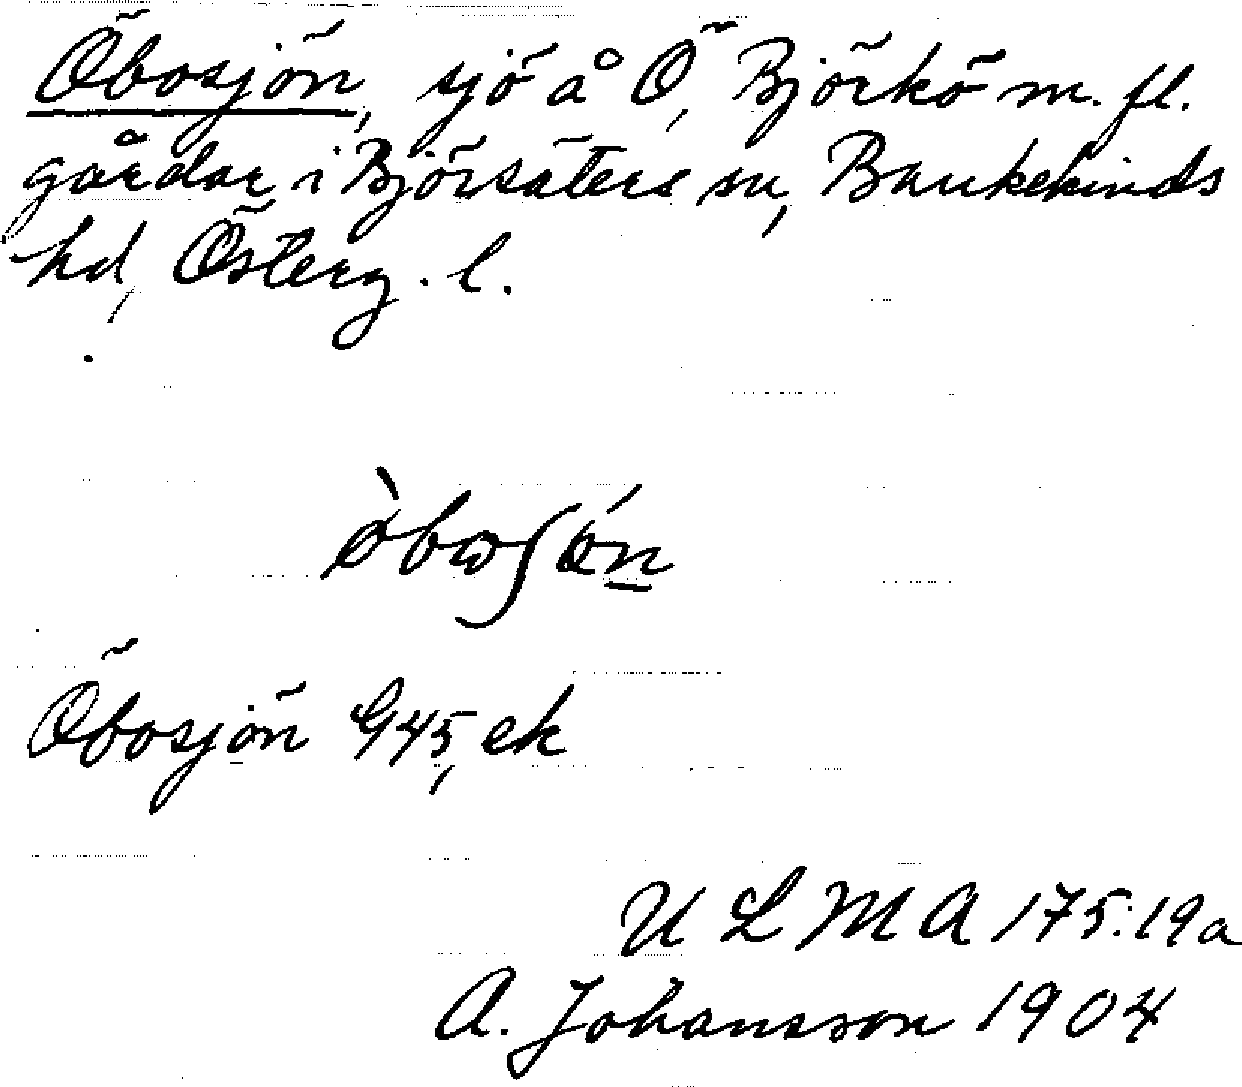 Öbosjön, sjö å Ö, Björkö m. fl.
gårdar i Björsäters sn, Bankekinds
hd, Österg. l.
Öbosjön G45, ek
U L M A 175:19a
A. Johansson 1904